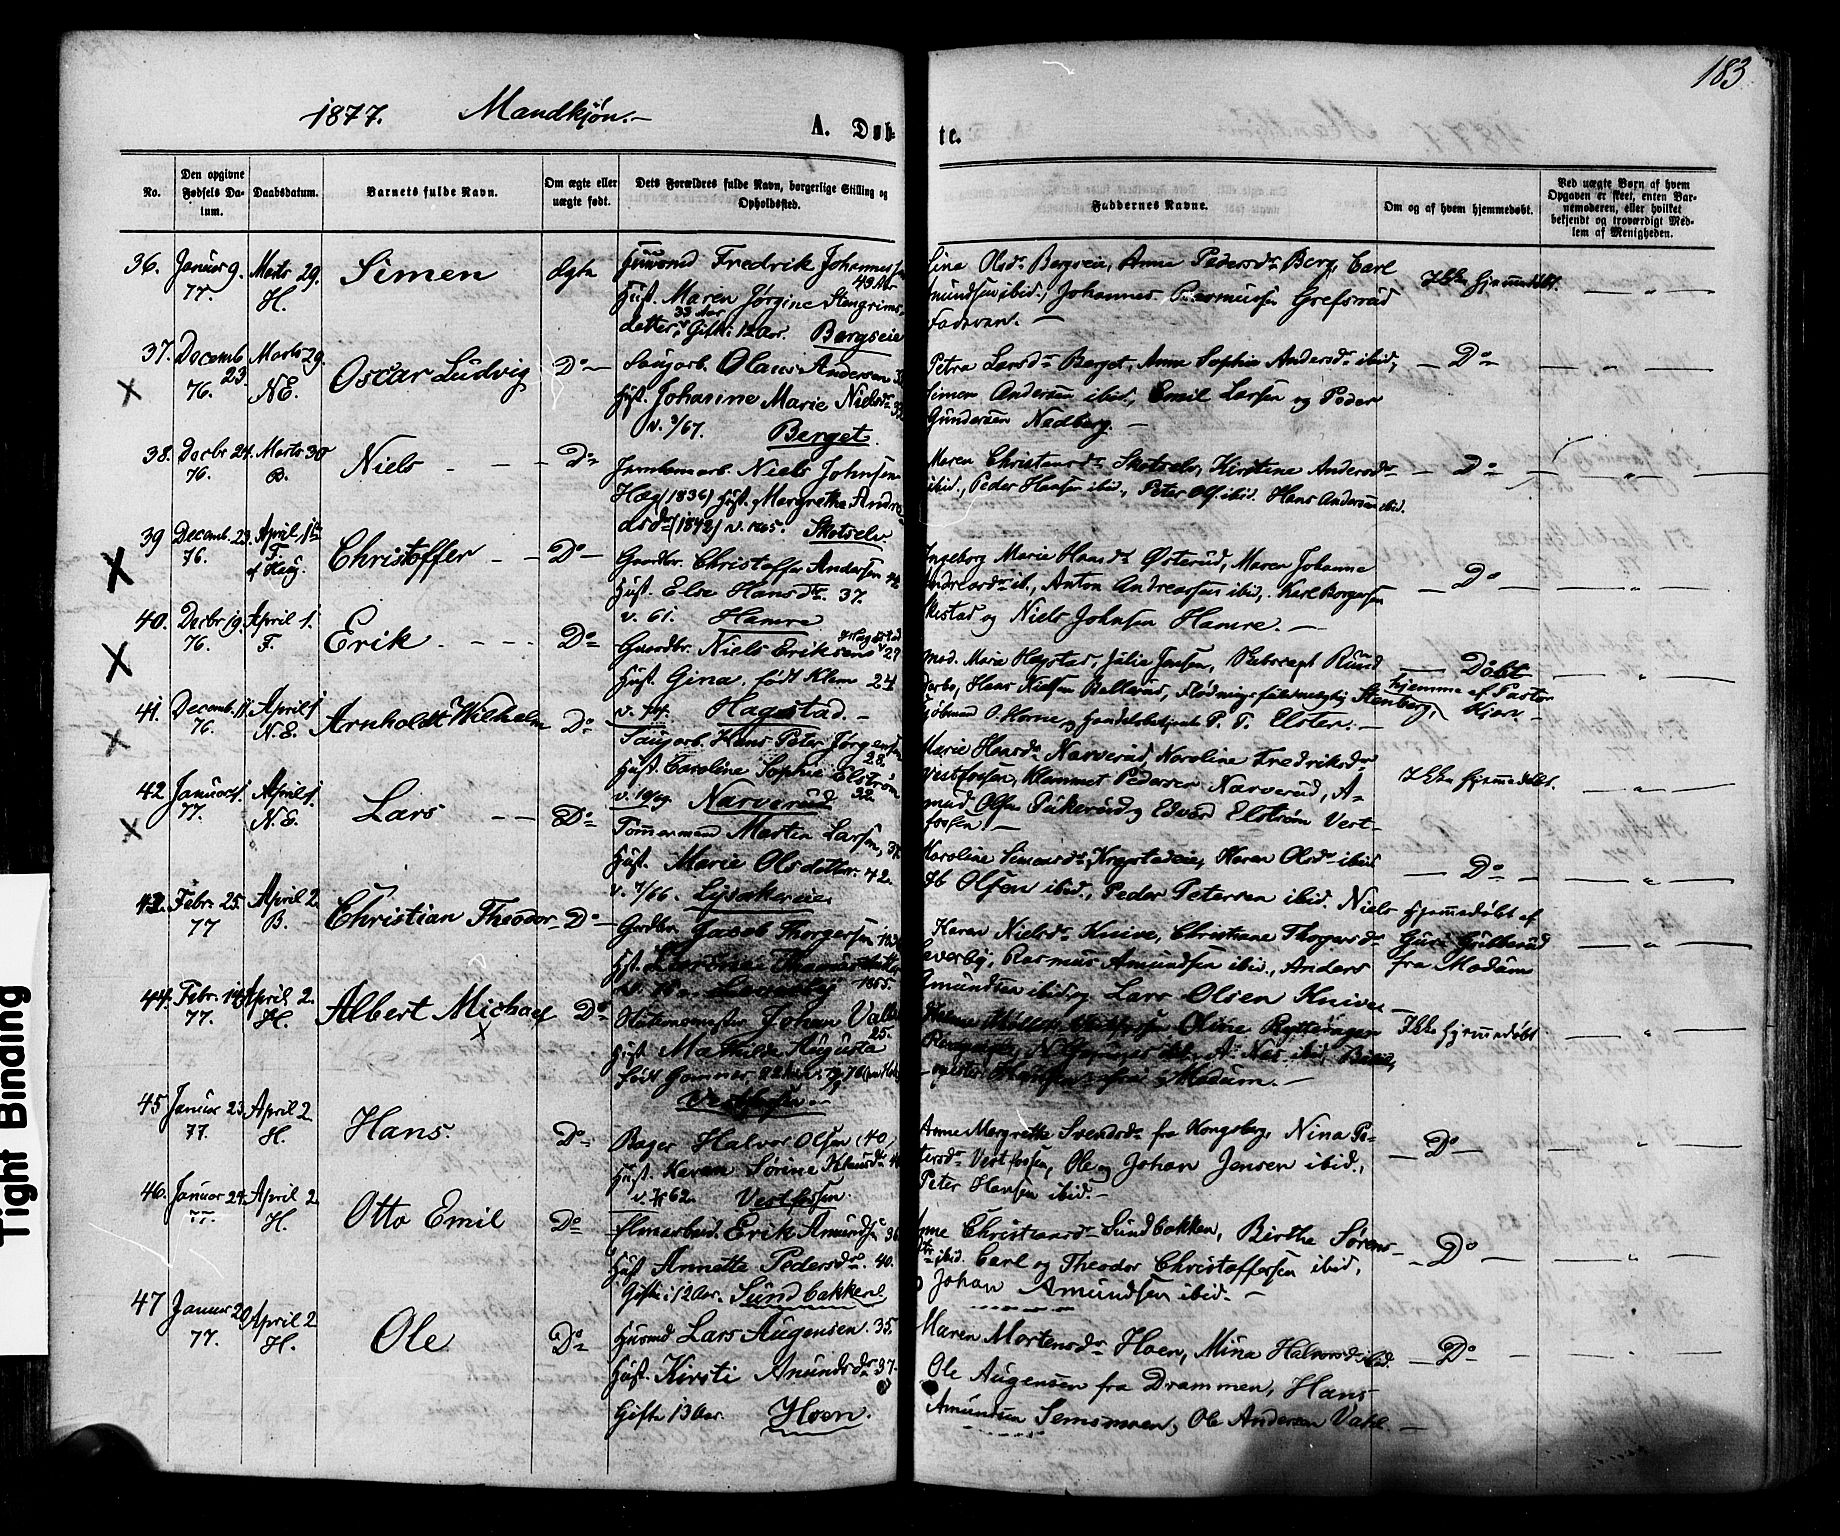 183
1877. Mandkjøn.
A. Døb-
te.
No.
Den opgivne Fødsels Da-
tum.
Daabsdatum.
Barnets fulde Navn.
Om ægte eller
uægte født.
Dets Forældres fulde Navn, borgerlige Stilling og
Opholdssted.
Faddernes Navne.
Om og af hvem hjemmedøbt.
Ved uægte Børn af hvem
Opgaven er skeet, enten Bar-
nemoderen, eller hvilket
bekjendt og troværdigt Med-
lem af Menigheden.
36. Januar 9. 77. Marts 29. H. Simen Ægte
Huusmd Fredrik Johannessen
Hust. Maren Jørgine Stengrims-
datter, 33 Aar Gifte: 12 Aar. Bergseie
Lina Olsdr Bergseie, Anne Pedersdr Berg, Carl
Amundsen ibid., Johannes Rasmussen Grefsrud
Faderen.
Ikke hjemmedøbt.
37. Decemb. 23. 76. Marts 29. N.E. Oscar Ludvig Do
Saugarb. Olaus Andersen
Hust. Johanne Marie Nielsdr
v. 9/67. Berget.
Petra Larsdr Berget, Anne Sophie Andersdr ibid,
Simen Andersen ibid, Emil Larsen og Peder
Gundersen Nedberg.
Do
38. Decbr 24. 76. Marts 30 B. Niels Do
Niels Johnsen
Hæg (1836) Hust. Margrethe Andre-
dsdr (1842) v. 1865. Skotselv
Maren Christansdr Skotselv, Kirstine Andersdr
ibid., Peder Hansen ibid., Peter Ols. ibid. Hans Andersen ibid.
Do
39 Decemb. 23. 76. April 1ste F. af Haug. Christoffer Do
Gaardbr. Christoffer Andersen 42
Hust. Else Hansdr. 37.
v. 61. Hamre
Ingeborg Marie Hansdr Østerud, Maren Johanne
Andreasdr ib., Anton Andreassen ibid, Karl Borgersen
og Niels Johnsen Hamre.
Do
40. Decbr 19. 76. April 1. F. Erik Do
Gaardbr. Niels Eriksen Hagestad 29
Hust. Gina, født Klem 24
v. 74. Hagestad.
Marie Hagestad, Julie Jensen,
Hans Nielsen Bellerud, Flødningsfuldmægtig Stenberg,
O. Horne, og Handelsbetjent P. T. Elster.
Døbt
hjemme af Pastor
Kjær.
41. Decemb. 11. 76. April 1 N.E. Arnholdt Wilhelm Do
Saugarb. Hans Peter Jørgensen 28.
Hust. Caroline Sophie Elstrøm 32
Narverud
Marie Hansdr Narverud, Karoline Fredriksdr
Vestfossen, Klemmet Pedersen Narverud, A-
mund Olsen og Edvard Elstrøm Vest-
fossen
Ikke hjemmedøbt.
42 Januar 1. 77. April 1. N.E. Lars Do
Tømmermand Martin Larsen, 37.
Hust. Marie Olsdatter. 42.
v. 7/66. Lysakereie
Karoline Simensdr Krystadeie, Karen Olsdr ibid
Olsen ibid., Peder Petersen ibid. Niels
Do
43. Febr. 25. 77 April 2. B. Christian Theodor Do
Gardbr. Jacob Thorgersen
Hst.
Karen Nielsdr Knive, Christiane Thorgersdr
Leverby, Rasmus Amundsen ibid., Anders
Amundsen ibid og Lars Olsen Knive
Hjemmedøbt af
Guri Gulberud
fra Modum
44. Febr. 14. 77. April 2. H. Albert Michael Do
Stationsmester Johan 25.
Hust Mathilde Augusta
født
Vestfossen
Oline
Modum.
Ikke hjemmedøbt
45 Januar 23. 77. April 2 H. Hans. Do
Bager Halvor Olsen (40)
Hust. Karen Sørine Klausdr
v. 62. Vestfossen
Anne Margrethe Svendsdr fra Kongsberg, Nina Pe-
tersdr Vestfossen, Ole og Johan Jensen ibid.,
Peter Hansen ibid.
Do
46. Januar 24. 77. April 2 H. Otto Emil Do
Erik Amundsen 36
Hust Annette Pedersdr. 40.
Gifte: 12 Aar. Sundbakken
Anne Christiansdr Sundbakken, Birthe Sørens-
dtr ibid. Carl og Theodor Christoffersen ibid,
Johan Amundsen ibid.
Do
47 Januar 20 77. April 2 H. Ole Do
Husmd Lars Augensen. 35.
Hust. Kirsti Amundsdr 37.
Gifte 13 Aar. Hoen.
Maren Mortensdr Hoen, Mina Halvorsdr ibid.
Ole Augensen fra Drammen, Hans
Amundsen Semsmoen, Ole Andersen Vahl.
Do
Tight Binding